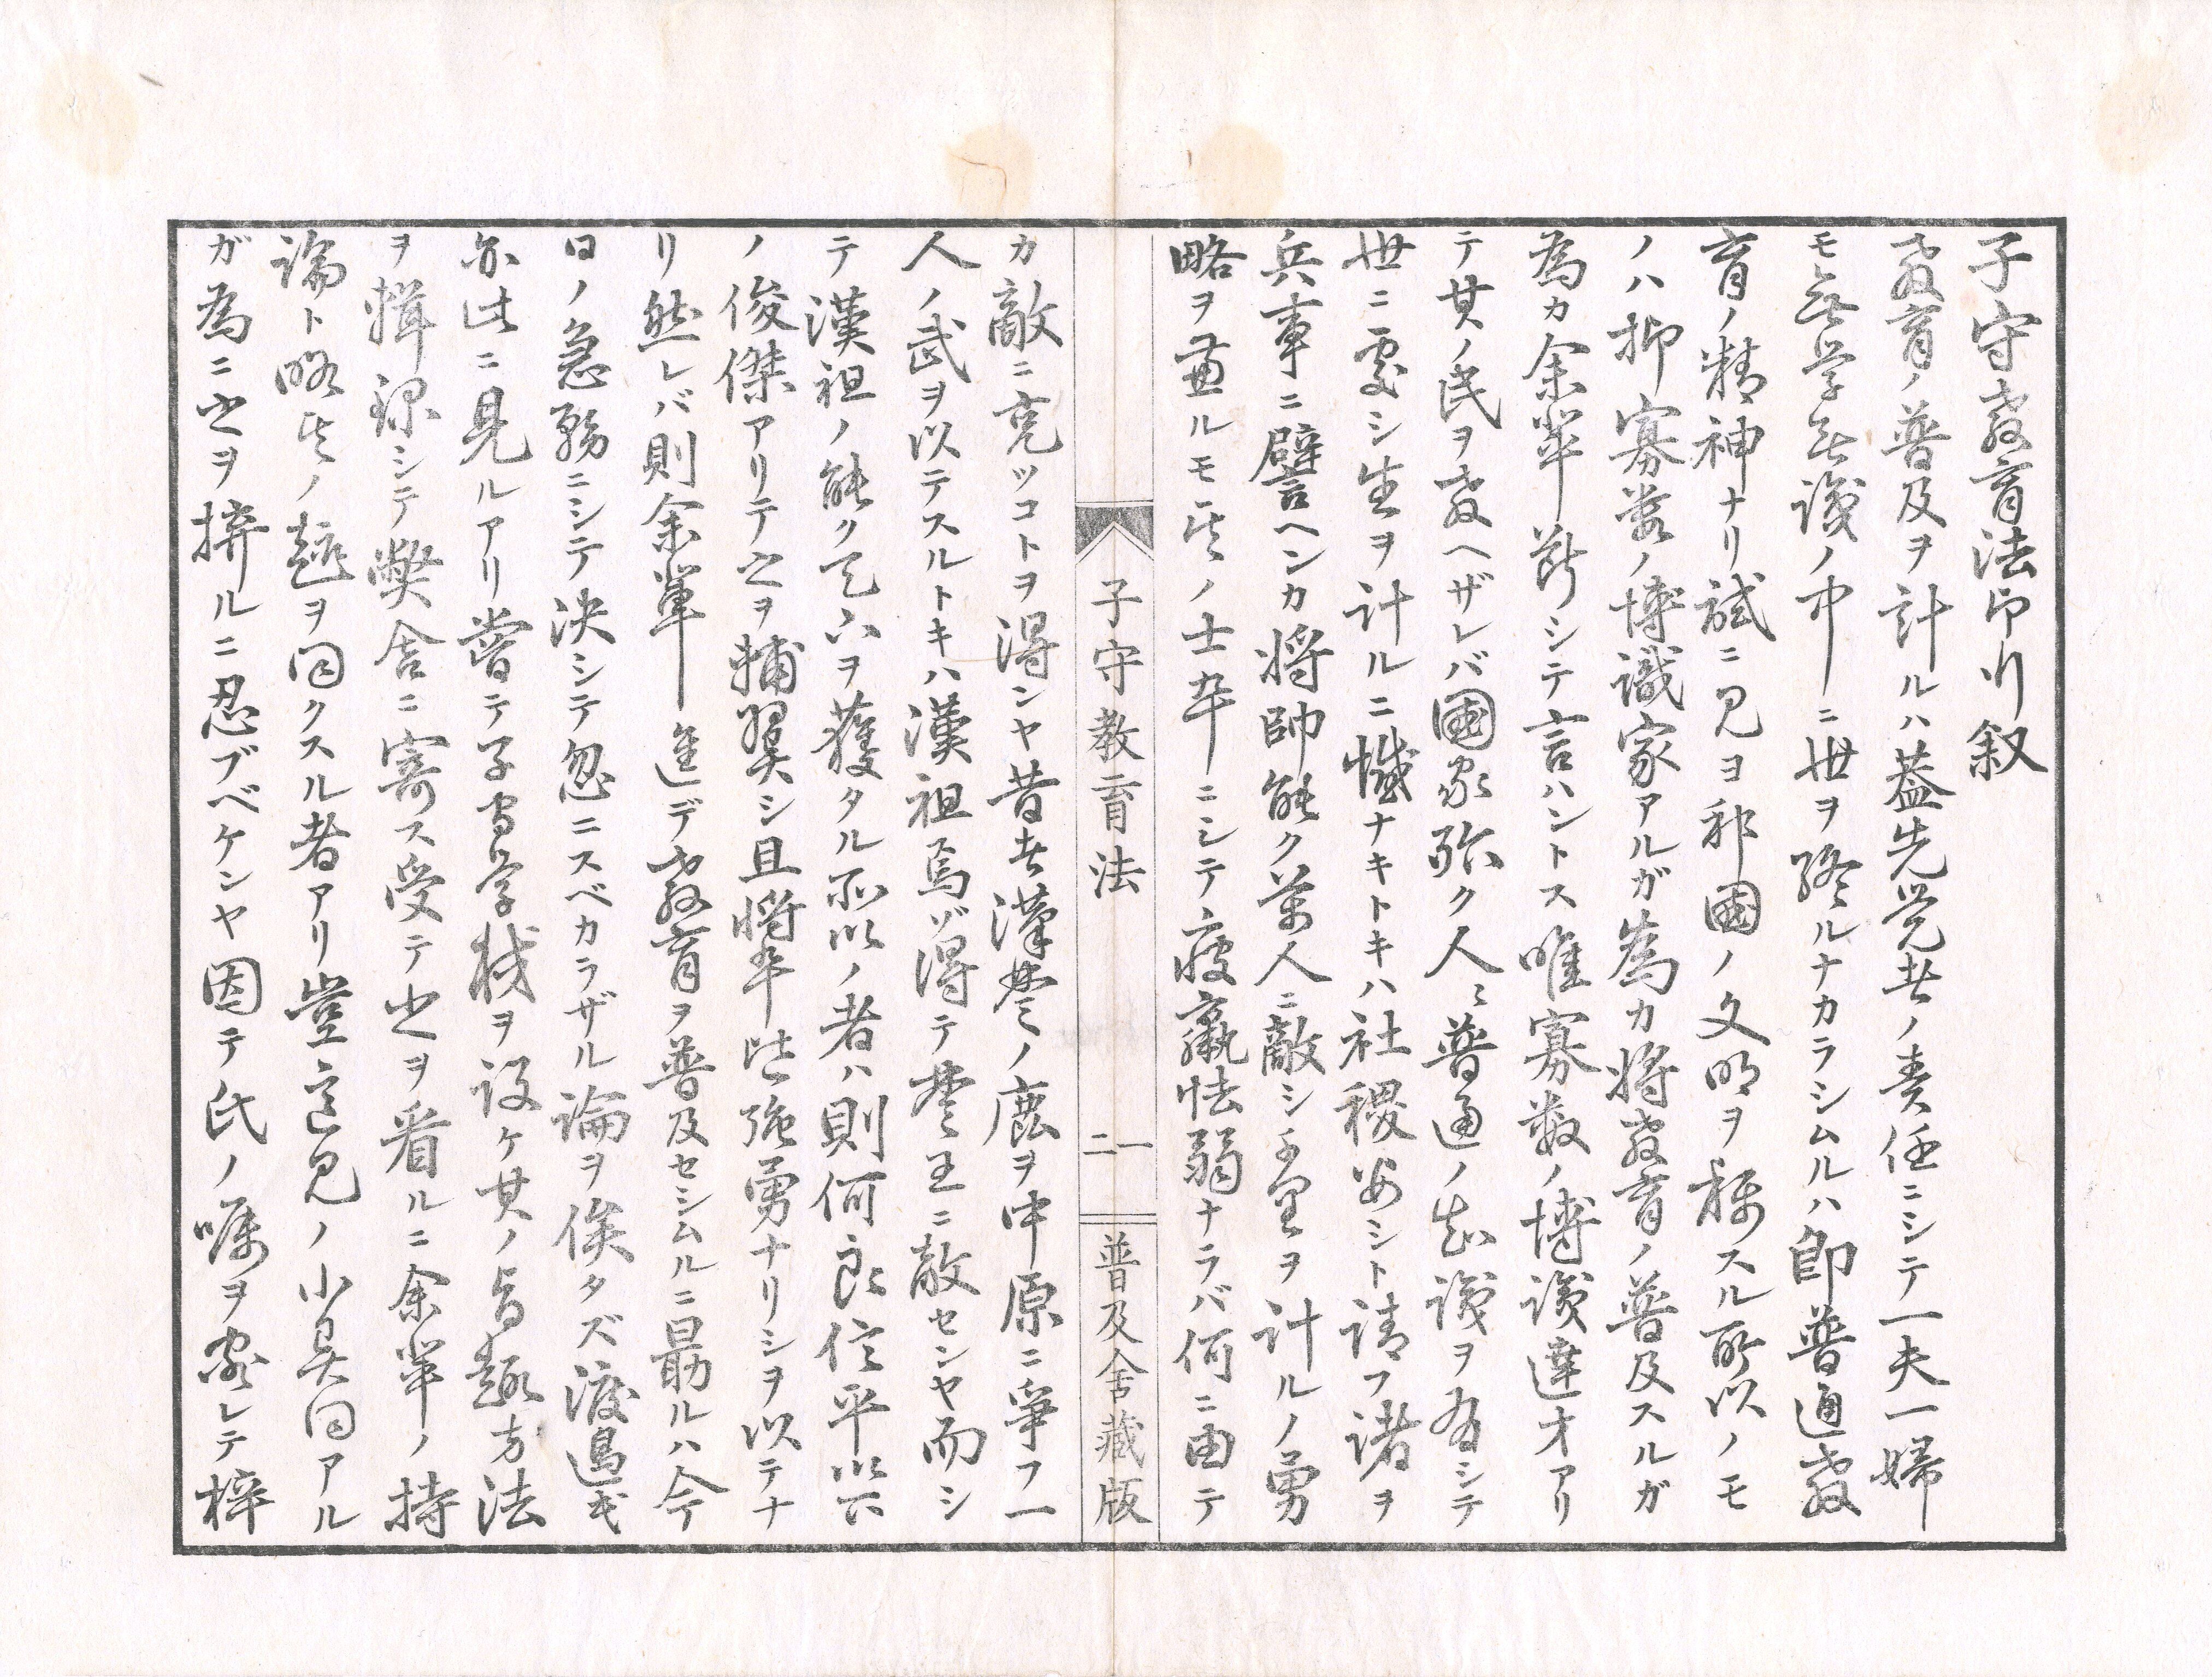 子守教育法印行叙
教育ノ普及ヲ計ルハ蓋先覚者ノ責任ニシテ一夫一婦
モ無学無識ノ中ニ世ヲ終ルナカラシムルハ即普通教
育ノ精神ナリ試ニ見ヨ邦國ノ文明ヲ称スル所以ノモ
ノハ抑寡数ノ博識家アルガ為カ将教育ノ普及スルガ
為カ余輩断シテ言ハントス唯寡数ノ博識達才アリ
テ其ノ民ヲ教ヘザレバ國家弥ク人々普通ノ知識ヲ有シテ
世ニ處シ生ヲ計ルニ憾ナキトキハ社稷安シト請フ諸ヲ
兵事ニ譬ヘンカ将帥能ク萬人ニ敵シ千里ヲ計ルノ勇
略ヲ兼ルモ其ノ士卒ニシテ疲羸怯弱ナラバ何ニ由テ
子守教育法
一
二
普及舎蔵版
カ敵ニ克ツコトヲ得ンヤ昔者漢楚ノ鹿ヲ中原ニ爭フ一
人ノ武ヲ以テスルトキハ漢祖焉ゾ得テ楚王ニ敵センヤ而シ
テ漢祖ノ能ク天下ヲ獲タル所以ノ者ハ則何良信平以下
ノ俊傑アリテ之ヲ輔翼シ且将卒皆強勇ナリシヲ以テナ
リ然レバ則余輩進デ教育ヲ普及セシムルニ勗ルハ今
日ノ急務ニシテ決シテ忽ニスベカラザル論ヲ俟タズ渡邉氏
亦此ニ見ルアリ嘗テ子守学校ヲ設ケ其ノ旨趣方法
ヲ輯録シテ弊舎ニ寄ス受テ之ヲ看ルニ余輩ノ持
論ト略其ノ趣ヲ同クスル者アリ豈意見ノ小異同アル
ガ為ニ之ヲ擠ルニ忍ブベケンヤ因テ氏ノ嘱ヲ容レテ梓